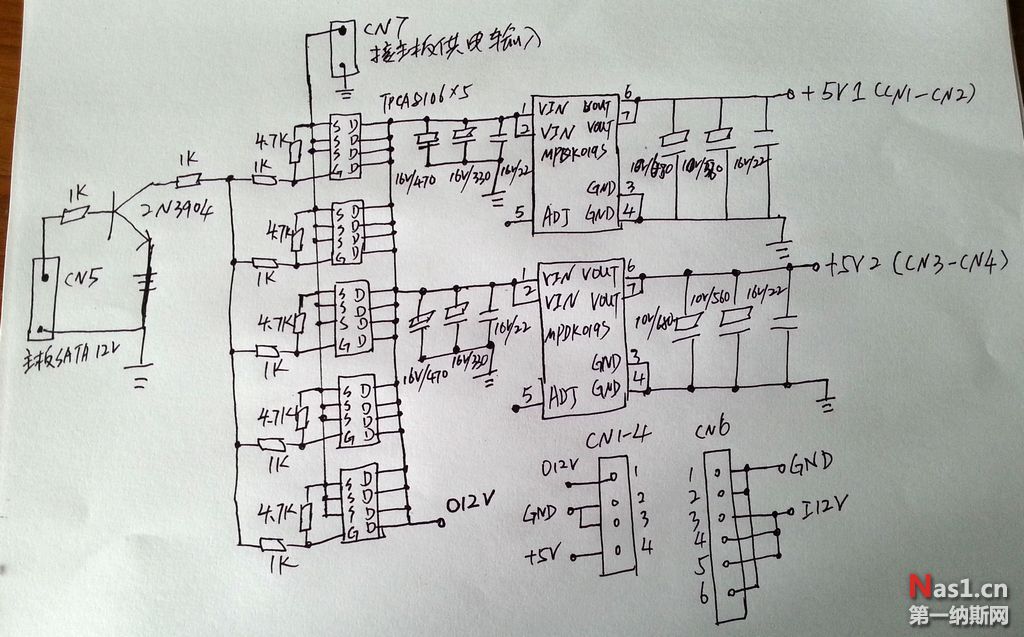 CN7
接主板供电输入
TPCA8106×5
4.7K
S D
S D
S D
G D
1K
1K
1K
2N3904
CN5
主板SATA 12V
16V/470
16V/330
16V/22
1
2
VIN
VIN
VOUT
6
7
MPDK019S
GND 3
GND 4
5
ADJ
16V/22
+5V1 (CN1-CN2)
4.7K
S D
S D
S D
G D
1K
4.7K
S D
S D
S D
G D
1K
16V/470
16V/330
16V/22
1
2
VIN VOUT
VIN VOUT
6
7
MPDK019S
GND 3
GND 4
5
ADJ
10V/680
10V/560
16V/22
+5V2 (CN3-CN4)
4.7K
S D
S D
S D
G D
1K
4.7K
S D
S D
S D
G D
1K
O12V
CN1-4
O12V
GND
+5V
1
2
3
4
CN6
1
2
3
4
5
6
GND
I12V
Nas1.cn
第一纳斯网